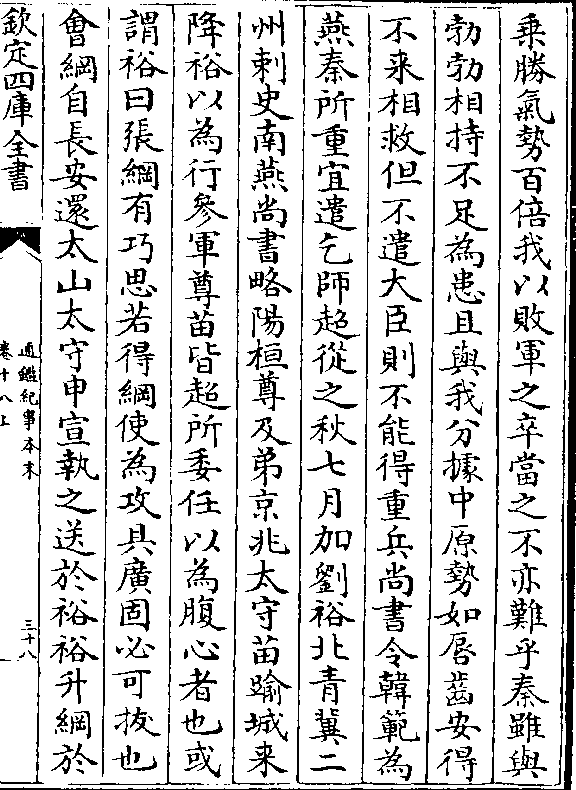 乗勝氣勢百倍我以敗軍之卒當之不亦難乎秦雖與
勃勃相持不足為患且與我分據中原勢如唇齒安得
不来相救但不遣大臣則不能得重兵尚書令韓範為
燕秦所重宜遣乞師超從之秋七月加劉裕北青冀二
州刺史南燕尚書略陽桓尊及弟京兆太守苗踰城来
降裕以為行參軍尊苗皆超所委任以為腹心者也或
謂裕曰張綱有巧思若得綱使為攻具廣固必可拔也
會綱自長安還太山太守申宣執之送於裕裕升綱於
欽定四庫全書
通鑑紀事本末
卷十八上
三十八